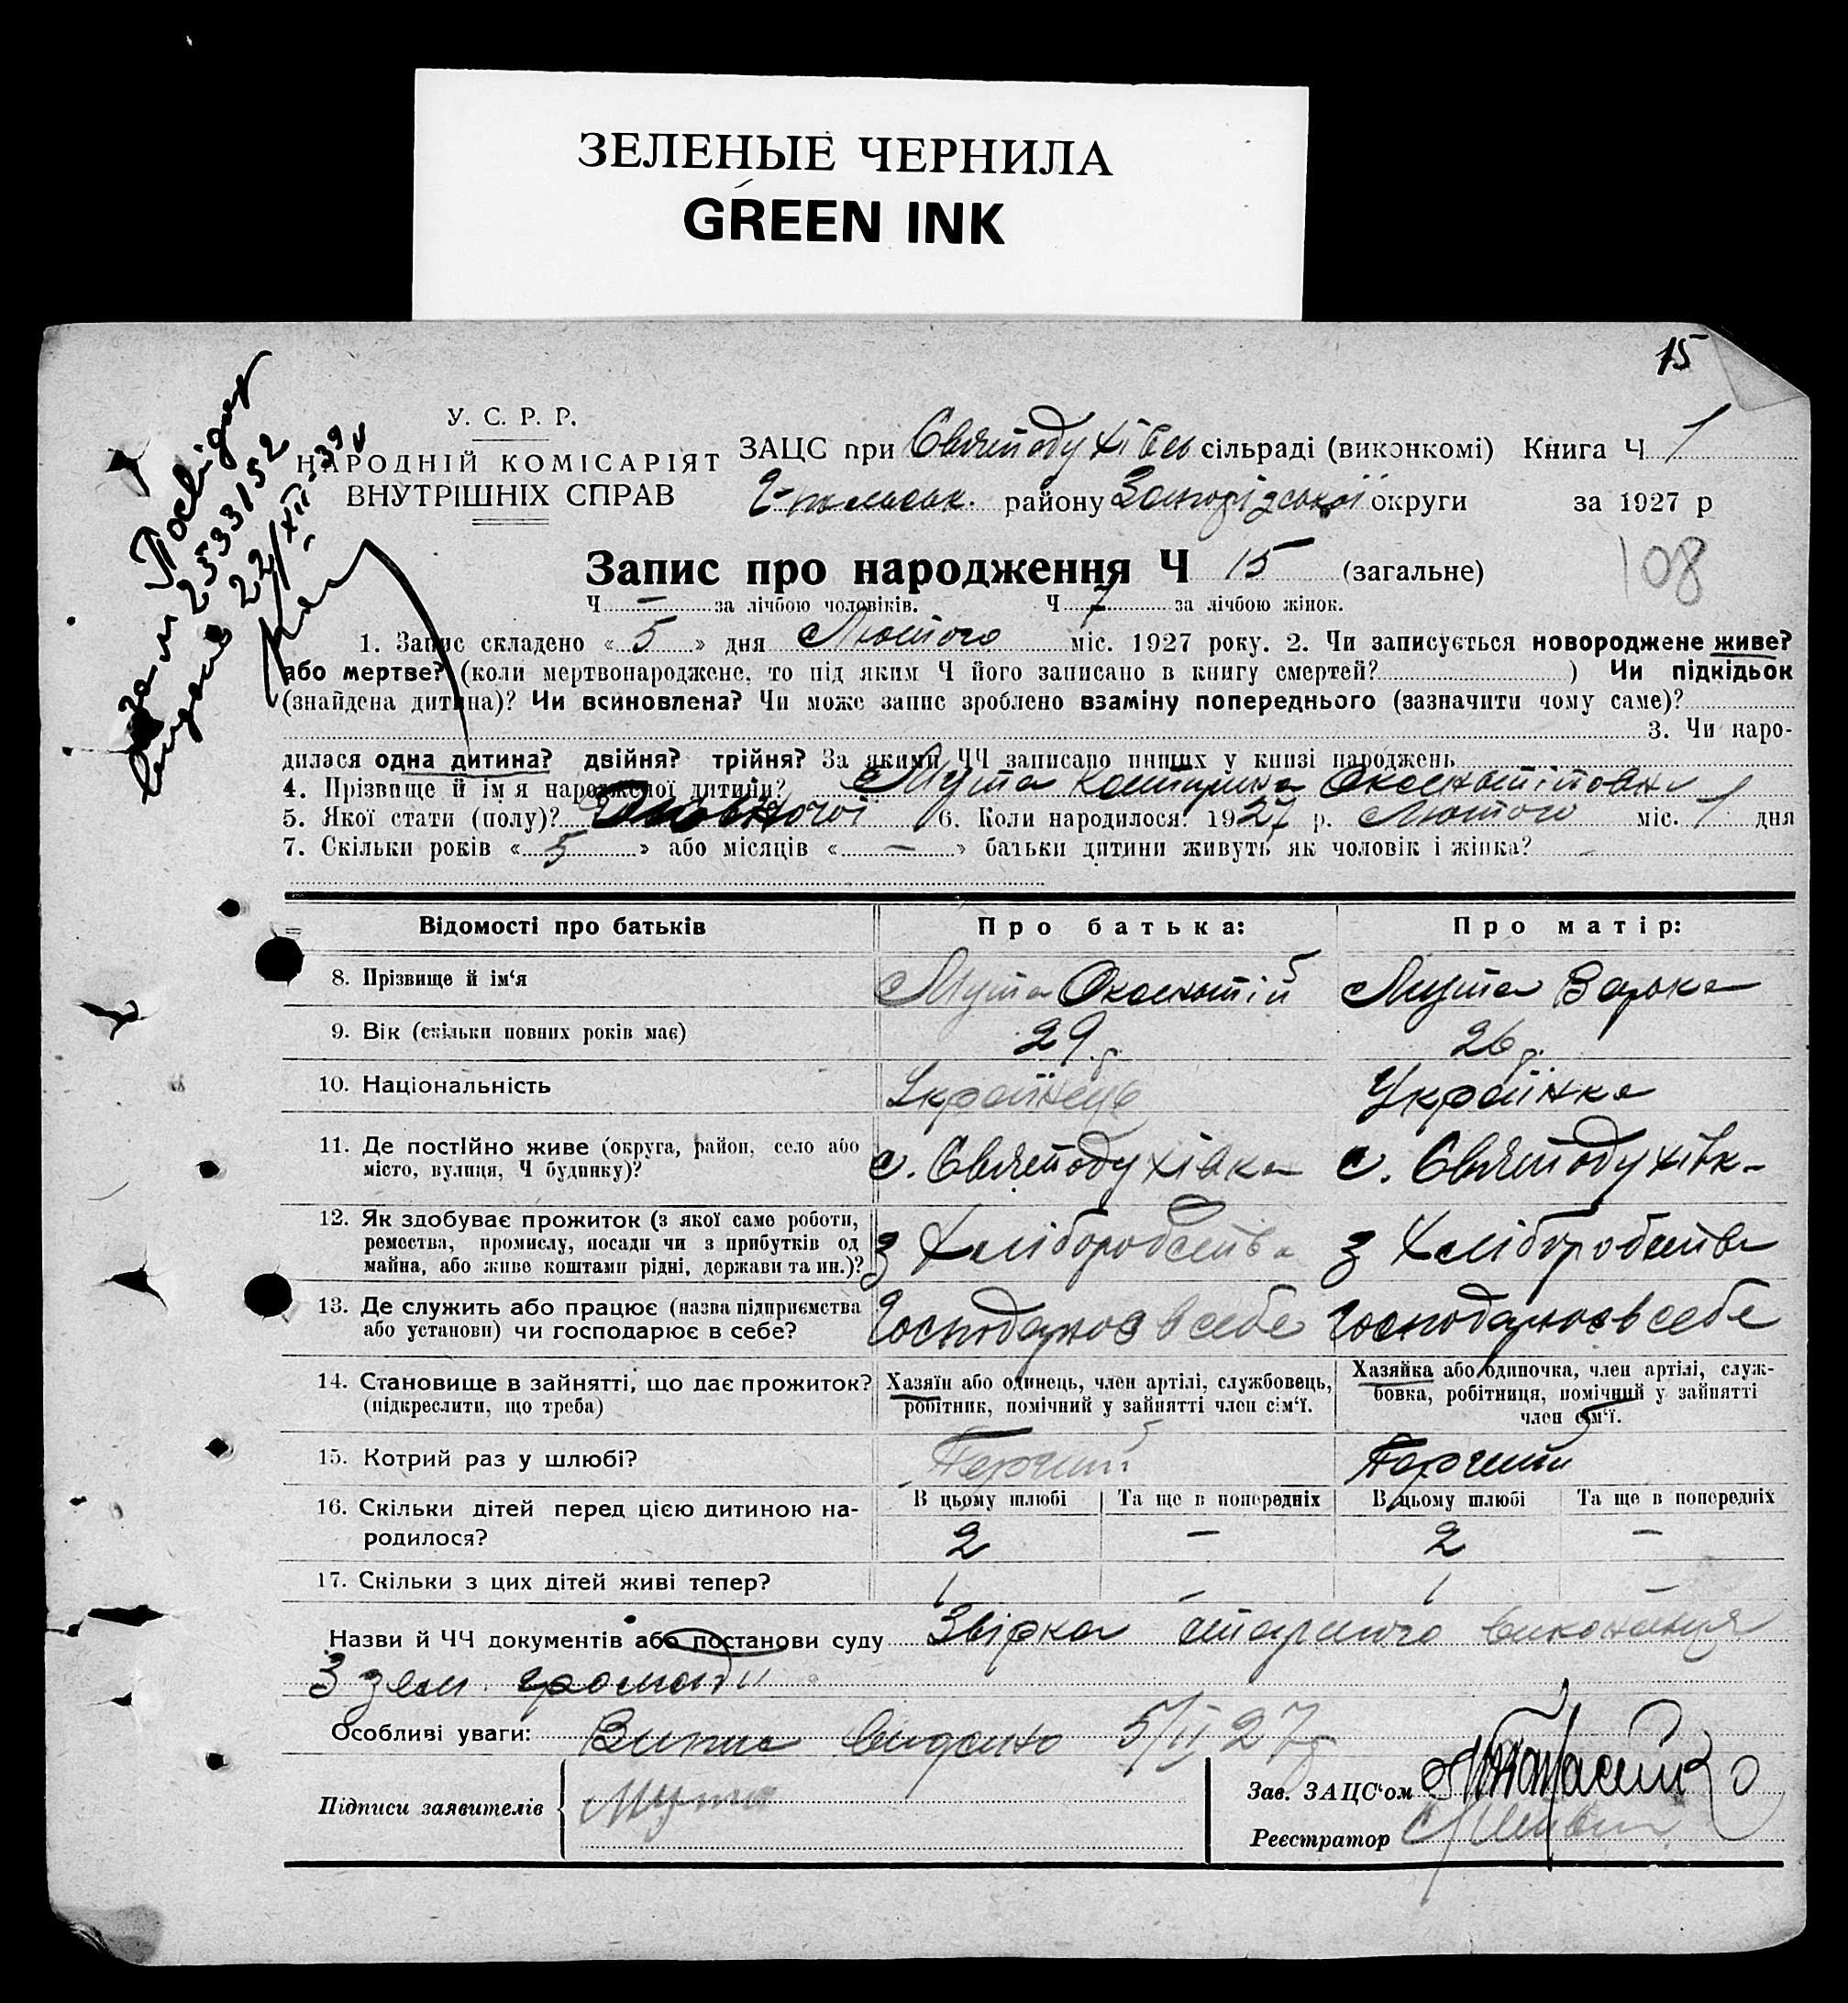 ЗЕЛЕНЫЕ ЧЕРНИЛА
GREEN INK
15
У. С. Р. Р.
НАРОДНІЙ КОМІСАРІЯТ
ВНУТРІШНІХ СПРАВ
ЗАЦС при Святодухівсь сільраді (виконкомі) Книга Ч 1
району Запорізської округи за 1927 р
Запис про народження Ч 15 (загальне)
108
Ч — за лічбою чоловіків. Ч 7 за лічбою жінок.
1. Запис складено « 5 » дня Лютого міс. 1927 року. 2. Чи записується новороджене живе?
або мертве? (коли мертвонароджене, то під яким Ч його записано в книгу смертей? ) Чи підкідьок
(знайдена дитина)? Чи всиновлена? Чи може запис зроблено взаміну попереднього (зазначити чому саме)?
3. Чи наро-
дилася одна дитина? двійня? трійня? За якими ЧЧ записано инших у книзі народжень
4. Прізвище й ім'я народженої дитини? Мута
5. Якої стати (полу)? 6. Коли народилося? 1927 р. Лютого міс. 1 дня
7. Скільки років « 5 » або місяців « — » батьки дитини живуть як чоловік і жінка? –
Відомості про батьків Про батька: Про матір:
8. Прізвище й ім'я Мута Оксентій Мута Варка
9. Вік (скільки повних років має) 29 р. 26 р.
10. Національність Українець Українка
11. Де постійно живе (округа, район, село або
місто, вулиця, Ч будинку)? с. Святодухівка с. Святодухівк
12. Як здобуває прожиток (з якої саме роботи,
ремества, промислу, посади чи з прибутків од
майна, або живе коштами рідні, держави та ин.)? З Хліборобства З Хліборобства
13. Де служить або працює (назва підприємства
або установи) чи господарює в себе? Господарює в себе Господарює в себе
14. Становище в зайнятті, що дає прожиток?
(підкреслити, що треба)
Хазяїн або одинець, член артілі, службовець,
робітник, помічний у зайнятті член сім'ї.
Хазяйка або одиночка, член артілі, служ-
бовка, робітниця, помічний у зайнятті
член сім'ї.
15. Котрий раз у шлюбі? Перший Перший
16. Скільки дітей перед цією дитиною на-
родилося?
В цьому шлюбі Та ще в попередніх В цьому шлюбі Та ще в попередніх
2 — 2 —
17. Скільки з цих дітей живі тепер? 1 – 1
Назви й ЧЧ документів або постанови суду Звірка старшого виконавця
З зем. громади
Особливі уваги: Випис видано 5/II 27 р
Підписи заявителів Мута
Зав. ЗАЦС'ом
Реєстратор
Посвідчер
25 33152
22/XII-39